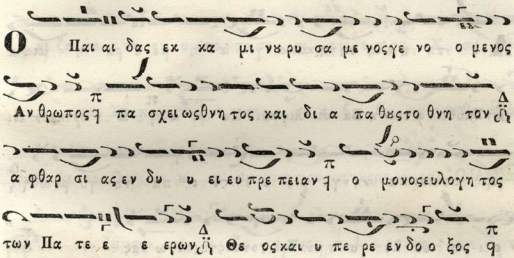 Ο Παι αι δας εκ κα μι νȣ ρυ σα με νος γε νο ο μενος
Αν θρωπος π̣ πα σχει ως θνη τος και δι α πα θȣς το θνη τον Δ
α φθαρ σι ας εν δυ υ ει ευ πρε πειαν π ο μονος ευλογη τος
των Πα τε ε ε ερων Δ Θε ος και υ πε ρε εν δο ο ξος π